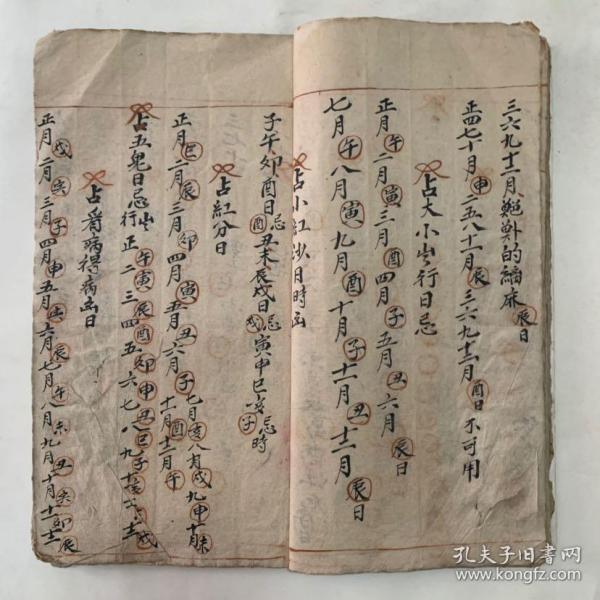 三六九十二月 的 床辰日
正四七十月申二五八十一月辰三六九十二月酉日不可用
占大小出行日忌
正月午二月寅三月酉四月子五月丑六月辰日
七月午八月寅九月酉十月子十一月丑十二月辰日
占小紅沙日時凶
子午卯酉日忌酉丑未辰戌日忌戌寅申巳亥忌時子
占紅分日
正月巳二月辰三月卯四月寅五月丑六月子七月亥八月戌九申十月未十一月酉十二月午
占五鬼日忌出行正午二寅三辰四酉五卯六申七丑八巳九子十亥
占看病得病凶日
正月戌二月亥三月子四月申五月 六月辰七月午八月未九月丑十月亥十一卯十二辰
孔夫子旧书网
www.kongfz.com